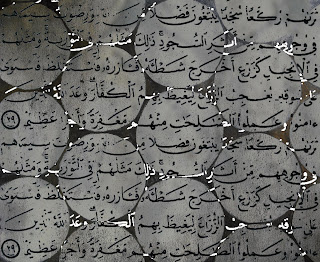 تَرَىٰهُمْ رُكَّعًا سُجَّدًا يَبْتَغُونَ فَضْلًا مِّنَ وَرِضْوَٰنًا سِيمَاهُمْ
فِى وُجُوهِهِم مِّنْ أَثَرِ ٱلسُّجُودِ ذَٰلِكَ مَثَلُهُمْ فِى ٱلتَّوْرَىٰةِ وَمَثَلُهُمْ
فِى ٱلْإِنجِيلِ كَزَرْعٍ أَخْرَجَ شَطْـَٔهُۥ فَـَٔازَرَهُۥ فَٱسْتَغْلَظَ فَٱسْتَوَىٰ
عَلَىٰ سُوقِهِۦ يُعْجِبُ ٱلزُّرَّاعَ لِيَغِيظَ بِهِمُ ٱلْكُفَّارَ وَعَدَ ٱلَّذِينَ
ءَامَنُوا۟ وَعَمِلُوا۟ ٱلصَّـٰلِحَـٰتِ مِنْهُم مَّغْفِرَةً وَأَجْرًا عَظِيمًۢا ٢٩
تَرَىٰهُمْ رُكَّعًا سُجَّدًا يَبْتَغُونَ فَضْلًا مِّنَ وَرِضْوَٰنًا سِيمَاهُمْ
فِى وُجُوهِهِم مِّنْ أَثَرِ ٱلسُّجُودِ ذَٰلِكَ مَثَلُهُمْ فِى ٱلتَّوْرَىٰةِ وَمَثَلُهُمْ
فِى ٱلْإِنجِيلِ كَزَرْعٍ أَخْرَجَ شَطْـَٔهُۥ فَـَٔازَرَهُۥ فَٱسْتَغْلَظَ فَٱسْتَوَىٰ
عَلَىٰ سُوقِهِۦ يُعْجِبُ ٱلزُّرَّاعَ لِيَغِيظَ بِهِمُ ٱلْكُفَّارَ وَعَدَ ٱلَّذِينَ
ءَامَنُوا۟ وَعَمِلُوا۟ ٱلصَّـٰلِحَـٰتِ مِنْهُم مَّغْفِرَةً وَأَجْرًا عَظِيمًۢا ٢٩